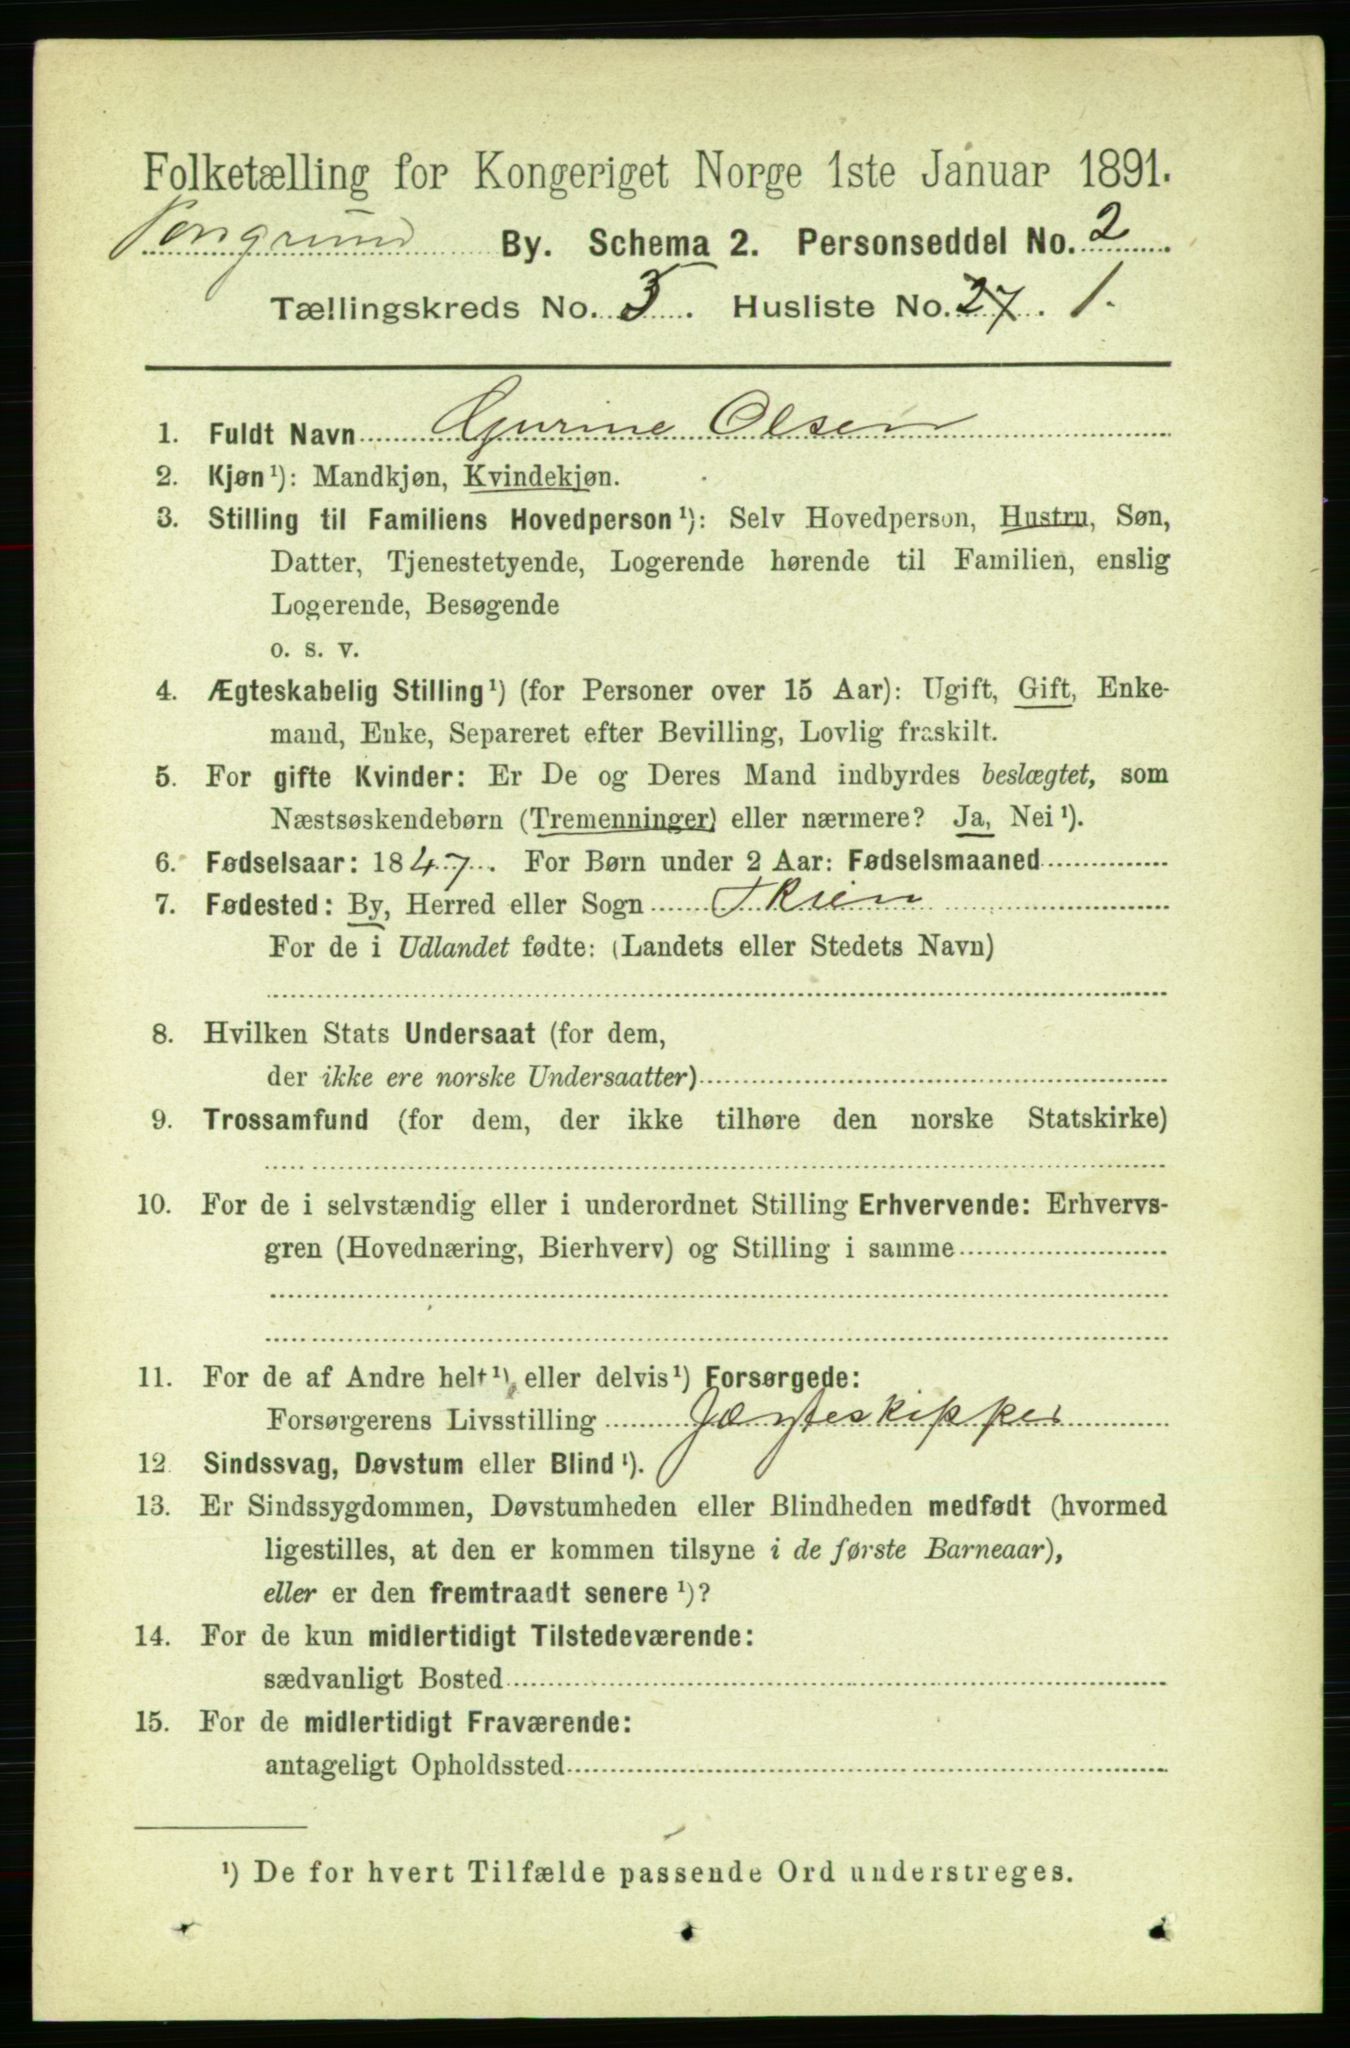 Folketælling for Kongeriget Norge 1ste Januar 1891.
Porsgrund By. Schema 2. Personseddel No. 2
Tællingskreds No. 5. Husliste No. 27. 1.
1. Fuldt Navn Gurine Olsen
2. Kjøn¹): Mandkjøn, Kvindekjøn.
3. Stilling til Familiens Hovedperson¹): Selv Hovedperson, Hustru, Søn,
Datter, Tjenestetyende, Logerende hørende til Familien, enslig
Logerende, Besøgende
o. s. v.
4. Ægteskabelig Stilling¹) (for Personer over 15 Aar): Ugift, Gift, Enke-
mand, Enke, Separeret efter Bevilling, Lovlig fraskilt.
5. For gifte Kvinder: Er De og Deres Mand indbyrdes beslægtet, som
Næstsøskendebørn (Tremenninger) eller nærmere? Ja, Nei¹).
6. Fødselsaar: 1847. For Børn under 2 Aar: Fødselsmaaned
7. Fødested: By, Herred eller Sogn Skien
For de i Udlandet fødte: (Landets eller Stedets Navn)
8. Hvilken Stats Undersaat (for dem,
der ikke ere norske Undersaatter)
9. Trossamfund (for dem, der ikke tilhøre den norske Statskirke)
10. For de i selvstændig eller i underordnet Stilling Erhvervende: Erhvervs-
gren (Hovednæring, Bierhverv) og Stilling i samme
11. For de af Andre helt¹), eller delvis¹) Forsørgede:
Forsørgerens Livsstilling Jægteskipper
12. Sindssvag, Døvstum eller Blind¹).
13. Er Sindssygdommen, Døvstumheden eller Blindheden medfødt (hvormed
ligestilles, at den er kommen tilsyne i de første Barneaar),
eller er den fremtraadt senere¹)?
14. For de kun midlertidigt Tilstedeværende:
sædvanligt Bosted
15. For de midlertidigt Fraværende:
antageligt Opholdssted
¹) De for hvert Tilfælde passende Ord understreges.